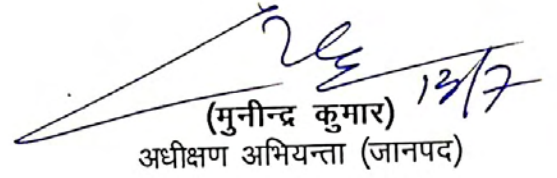 13/7
(मुनीन्द्र कुमार)
अधीक्षण अभियन्ता (जानपद)